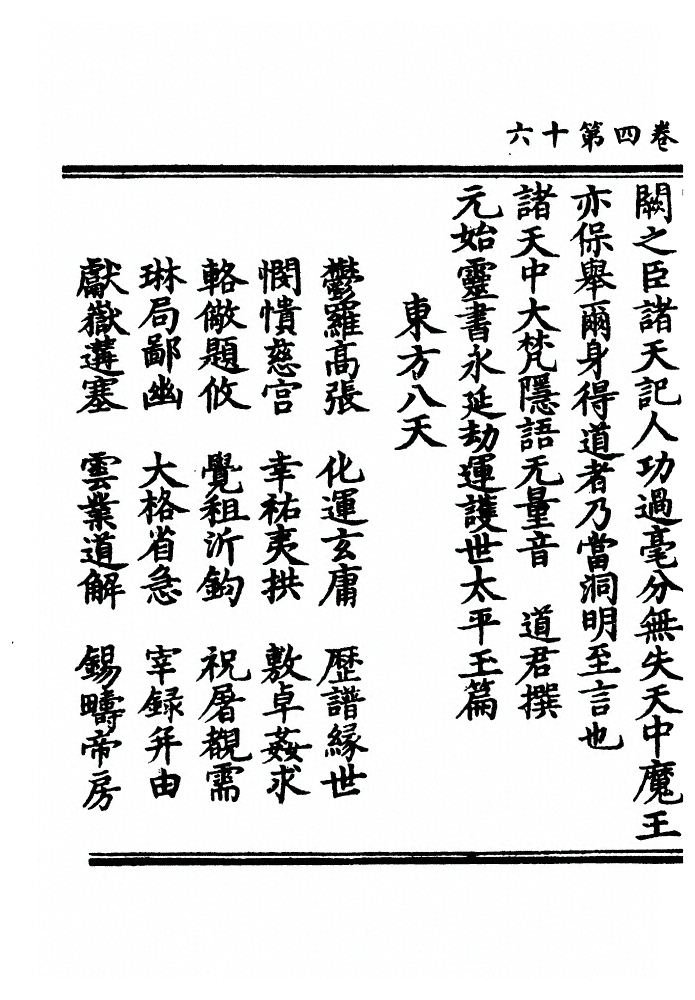 六十第四卷
闕之臣諸天記人功過毫分無失天中魔王
亦保舉爾身得道者乃當洞明至言也
諸天中大梵隱語无量音　道君撰
元始靈書永延劫運護世太平玉篇
東方八天
鬱羅高張　化運玄庸　歷譜緣世
憫憒慈宮　幸祐夷拱　敷卓姦求
輅儆題攸　覺租沂鈎　祝屠覩需
琳局鄙幽　大格省急　宰録并由
獻嶽遘塞　雲業道解　錫疇帝房